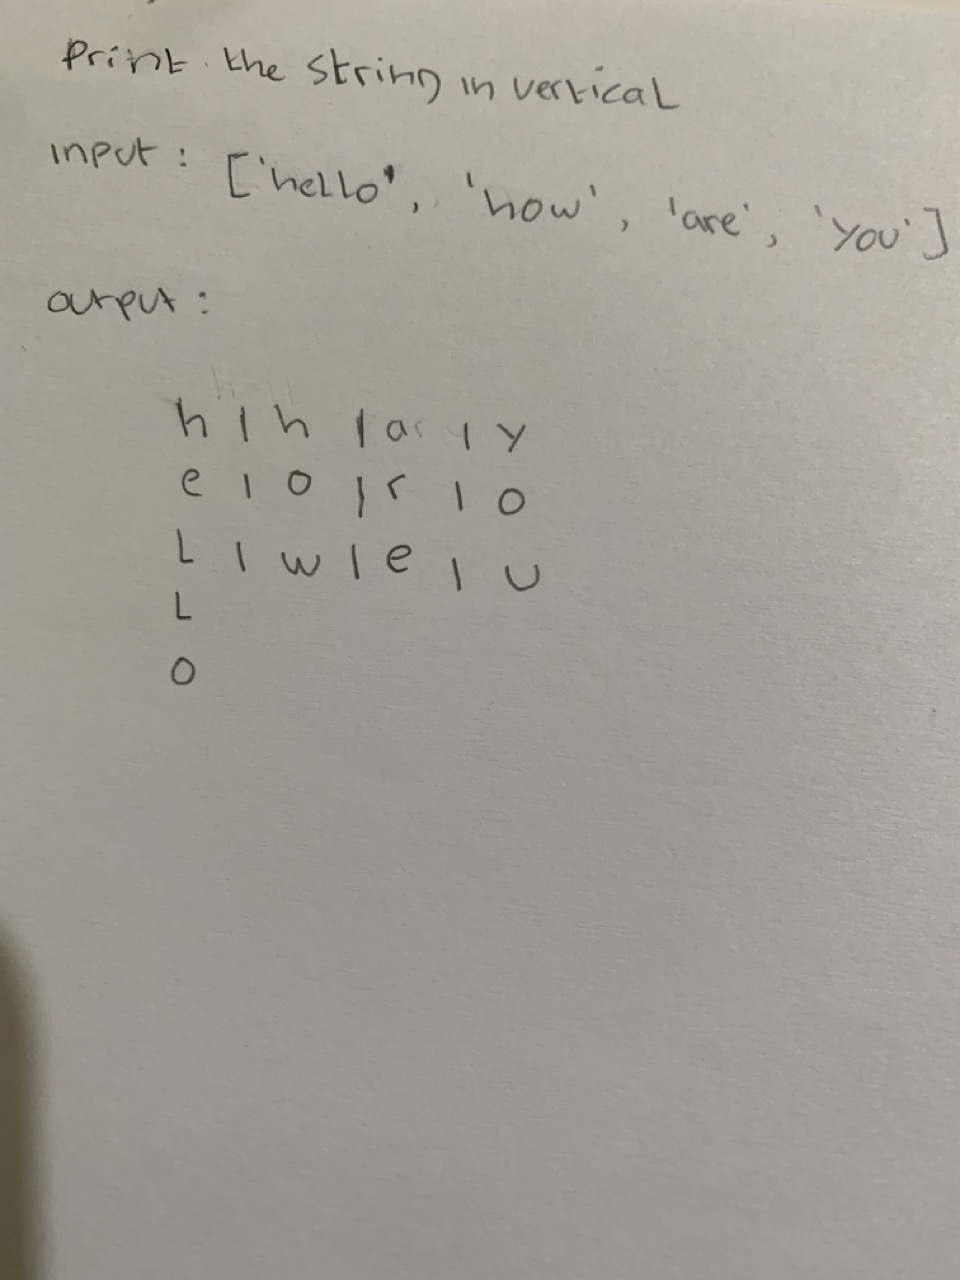 Print the string in vertical
input: ['hello', 'how', 'are', 'you']
output:
h | h | a | y
e | o | r | o
L | w | e | u
L
o